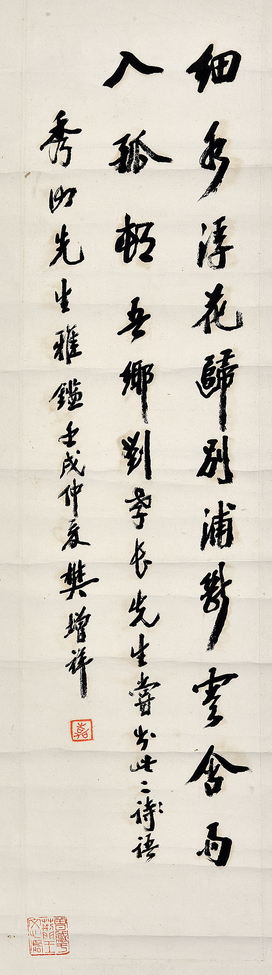 細水浮花歸別浦斷雲含雨
入孤邨吾鄉劉孝長先生嘗書此二詩語
秀山先生雅鑑壬戌仲夏樊增祥